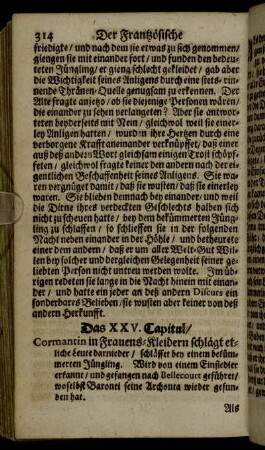 314 Der Frantzösische
friedigte / und nach dem sie etwas zu sich genommen /
giengen sie mit einander fort / und funden den bedeu-
teten Jüngling / er gieng schlecht gekleidet / gab aber
die Wichtigkeit seines Anligens durch eine stets-rin-
nende Thränen-Quelle genugsam zu erkennen. Der
Alte fragte anjetzo / ob sie diejenige Personen wären /
die einander zu sehen verlangten? Aber sie antwor-
teten beyderseits mit Nein / gleichwol weil sie einer-
ley Anligen hatten / wurden ihre Hertzen durch eine
verborgene Krafft aneinander verknüpffet / daß einer
auß deß andern Wort gleichsam einigen Trost schöpf-
feten / gleichwol fragte keiner den andern nach der ei-
gentlichen Beschaffenheit seines Anligens. Sie wa-
ren vergnüget damit / daß sie wusten / daß sie einerley
waren. Sie blieben demnach bey einander / und weil
die Dirne ihres verdeckten Geschlechts halben sich
nicht zu scheuen hatte / bey dem bekümmerten Jüng-
ling zu schlaffen / so schlieffen sie in der folgenden
Nacht neben einander in der Höhle / und betheurete
einer dem andern / daß er um aller Welt-Gut Wil-
len bey solcher und dergleichen Gelegenheit seiner ge-
liebten Person nicht untreu werden wolte. Im üb-
rigen redeten sie lange in die Nacht hinein mit einan-
der / und hatte ein jeder an deß andern Discurs ein
sonderbares Belieben / sie wusten aber keiner von deß
andern Herkunfft.
Das XXV. Capitul /
Cormantin in Frauens-Kleidern schlägt et-
liche Leute darnieder / schläffet bey einem beküm-
merten Jüngling. Wird von einem Einsiedler
erkannt / und gefangen nach Bellecourt geführet /
woselbst Baronei seine Archonta wieder gefun-
den hat.
Als